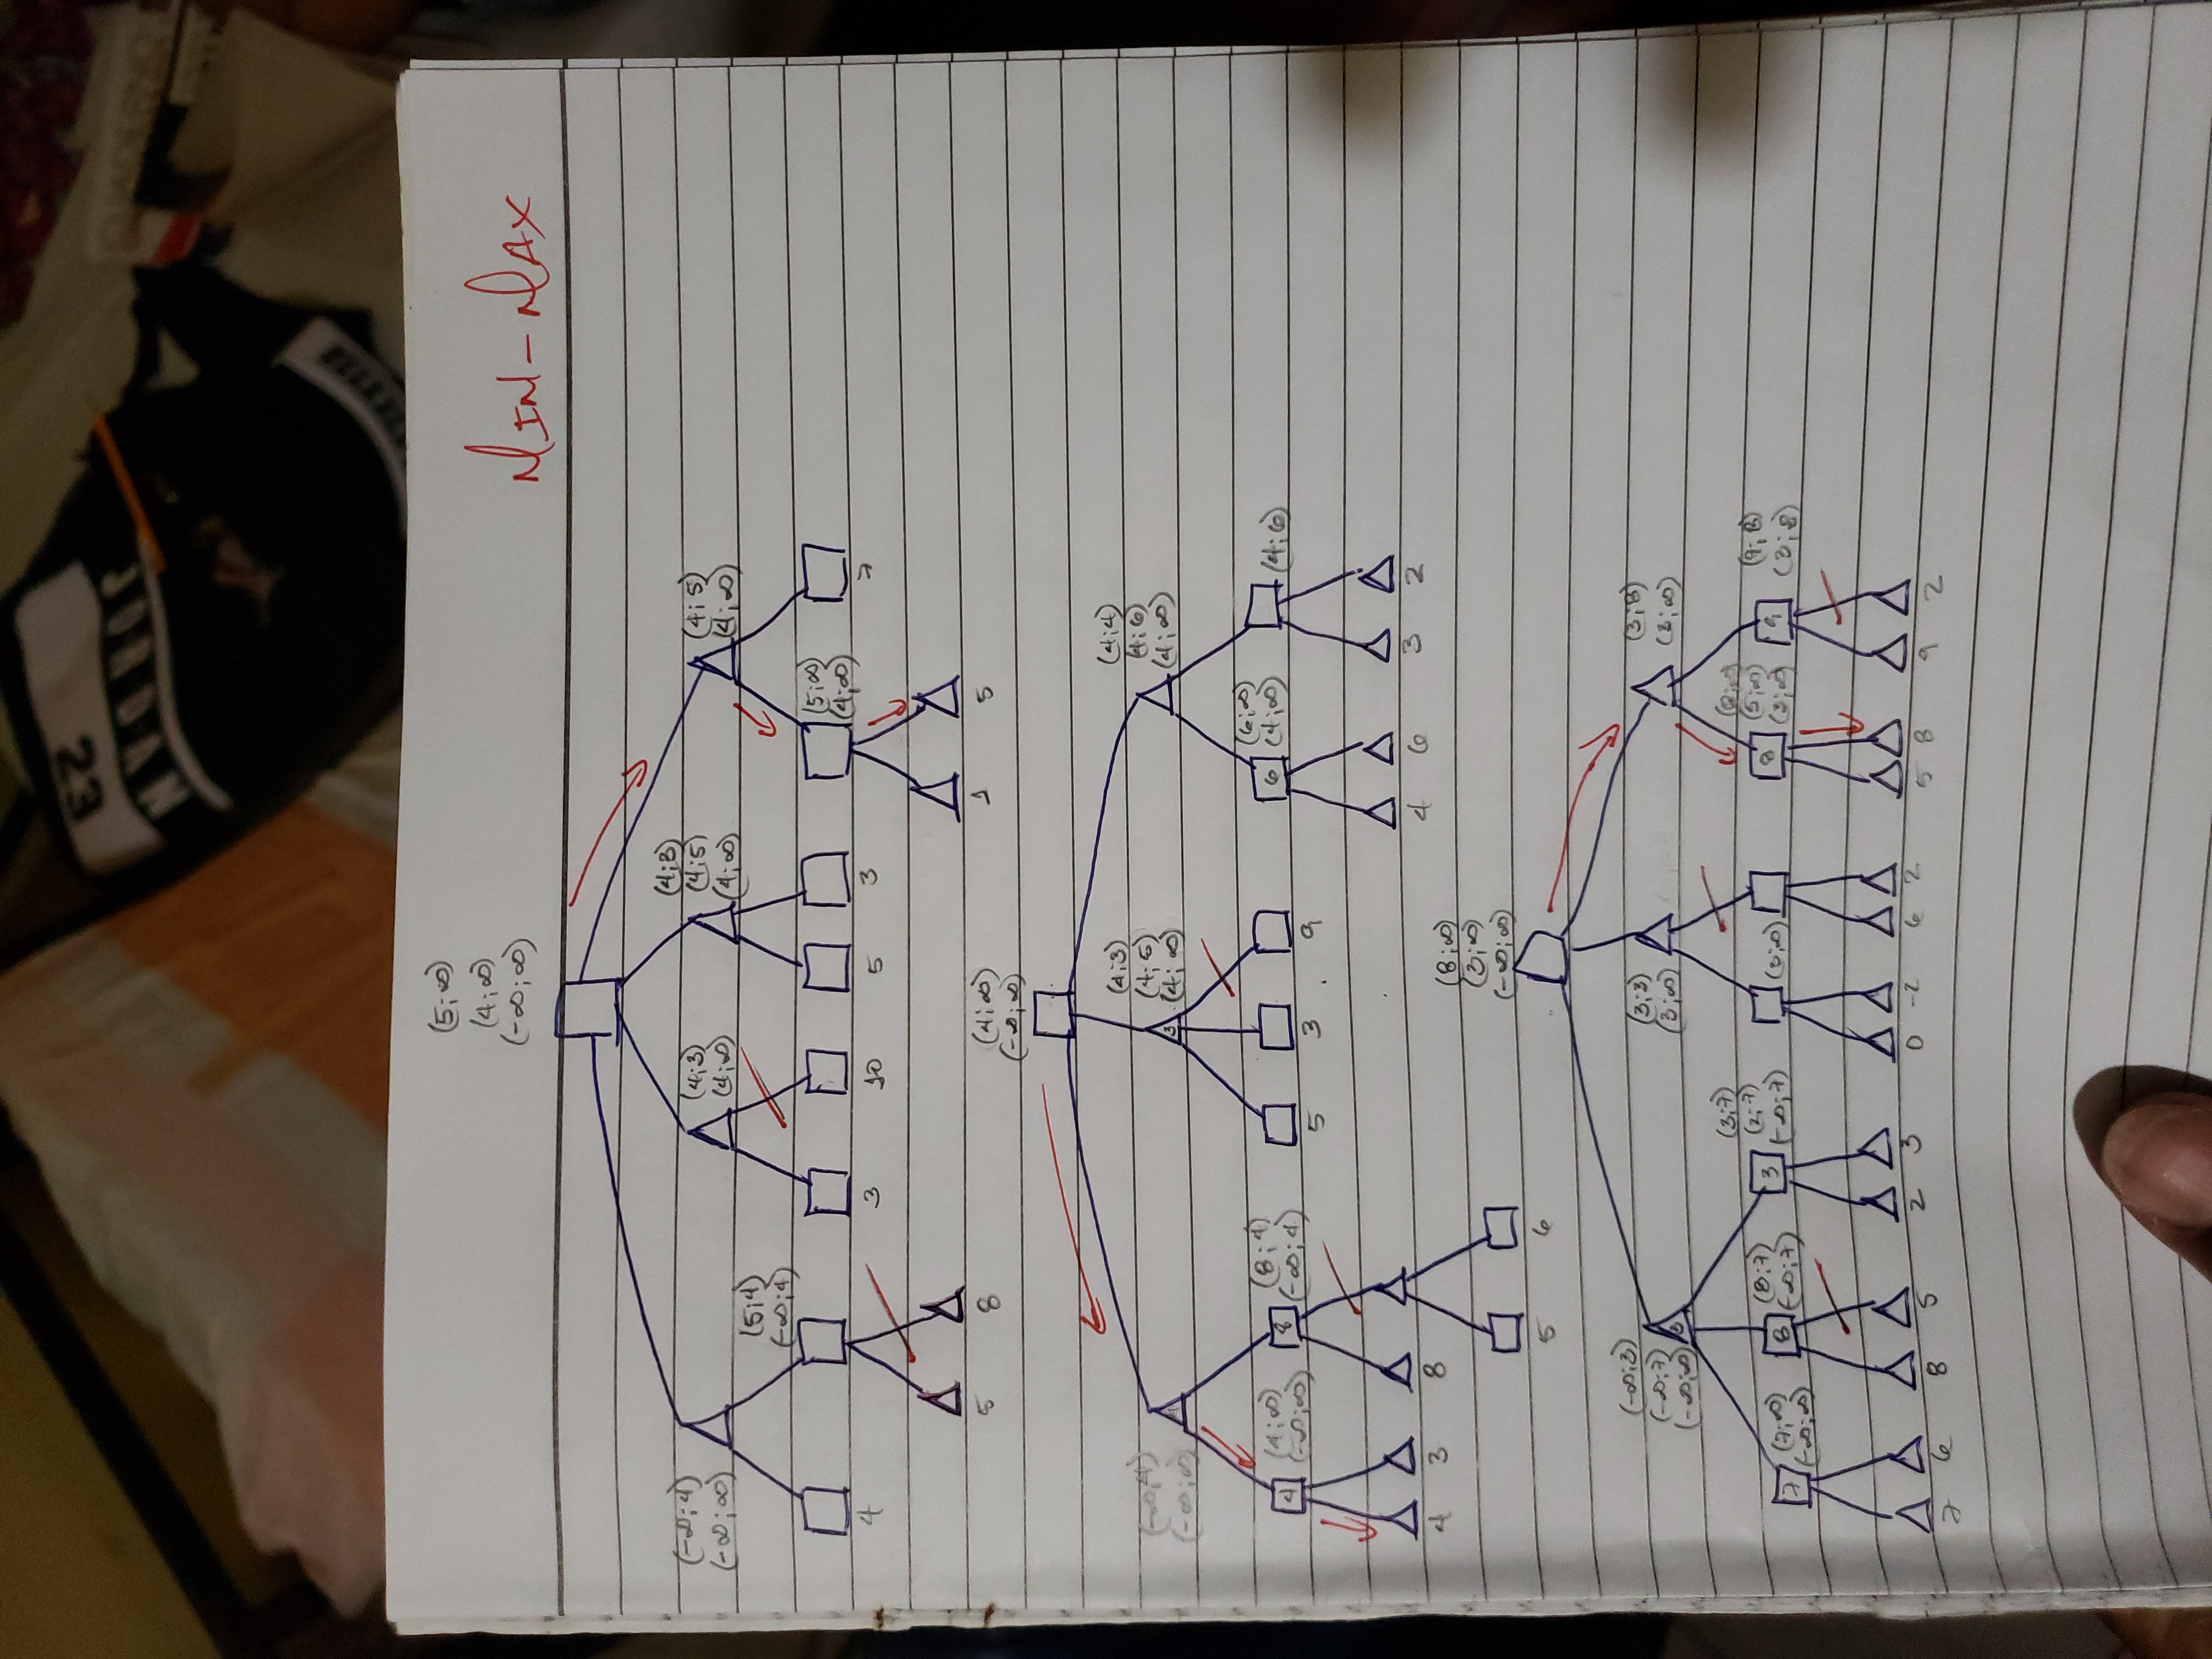 23
JORDAN
(5;∞)
(4;∞)
(-∞;∞)
MIN-MAX
(-∞;4)
(-∞;∞)
(5;4)
(-∞;4)
(4;3)
(4;∞)
(4;3)
(4;5)
(4;∞)
(4;5)
(4;∞)
(5;∞)
(4;∞)
4 3 10 5 3 7
5 8 1 5
(4;∞)
(-∞;∞)
(-∞;4)
(-∞;∞)
(4;3)
(4;5)
(4;∞)
3
(4;4)
(4;6)
(4;∞)
4
(4;∞)
(-∞;∞)
8
(8;4)
(-∞;4)
6
(6;∞)
(4;∞)
(4;6)
5 3 9
4 3 8 4 6 3 2
5 6
(8;∞)
(3;∞)
(-∞;∞)
(-∞;3)
(-∞;7)
(-∞;∞)
3
(3;3)
(3;∞)
(3;8)
(3;∞)
7
(7;∞)
(-∞;∞)
8
(8;7)
(-∞;7)
3
(3;7)
(2;7)
(-∞;7)
(3;∞)
8
(8;∞)
(5;∞)
(3;∞)
9
(9;8)
(3;8)
7 6 8 5 2 3 0 -2 6 2 5 8 9 2